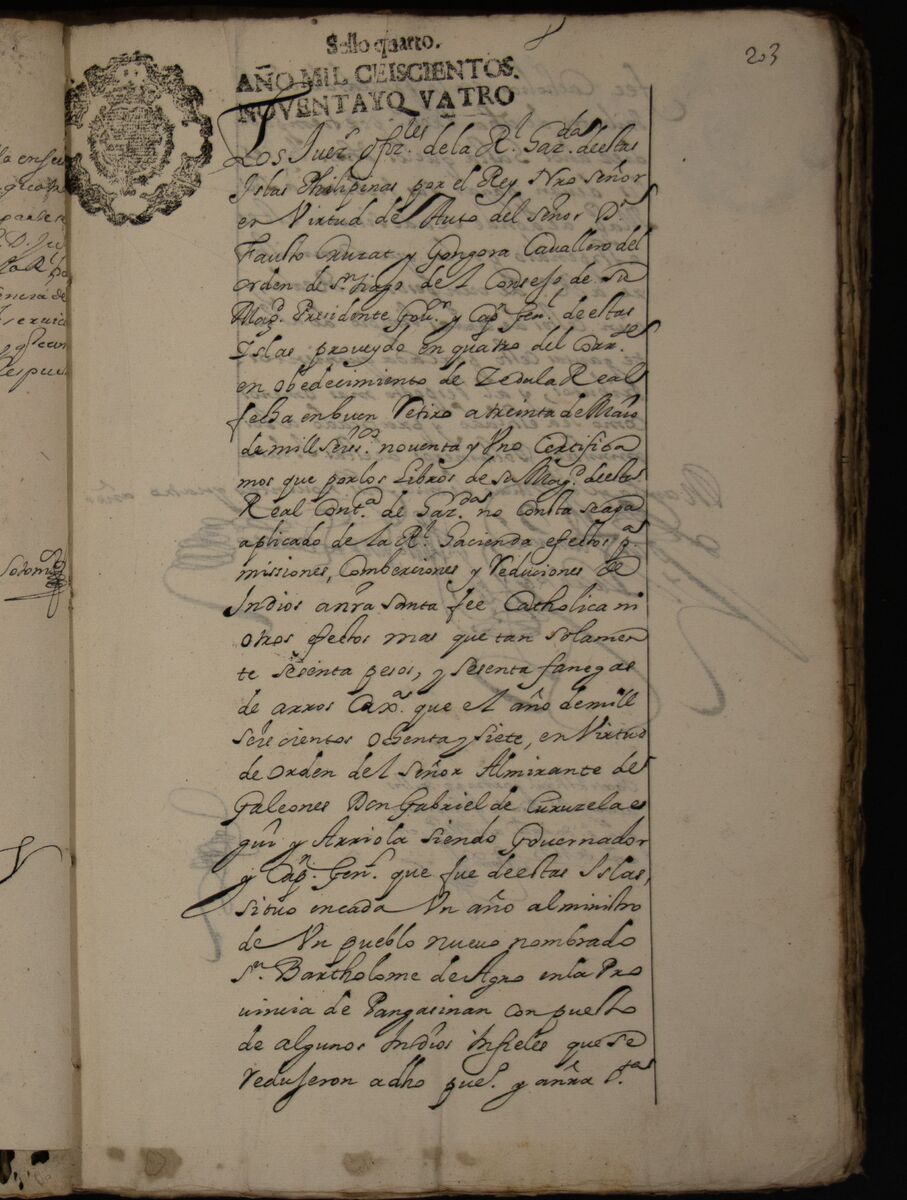 23
Sello quarto.
AÑO MIL CEISCIENTOS.
NOVENTAYQVATRO
Los Juezs. y ffzles. de la Rl. Hazda. deestas
Islas Philipinas por el Rey Nro Señor
en Virtud de Auto del Señor Dn.
Fausto Cruzat y Gongora Cavallero del
orden de Sntiago del Consejo de su
Magd. Presidente Govor. y Capn. Genl. de estas
Islas proveydo en quatro del Corrte.
en obedecimiento de Zedula Real
fecha en buen Retiro a treinta de Maio
de mill seisos. noventa y Vno Certifica
mos que por los Libros de su Magd. deesta
Real Conta. de Hazda. no Consta se aga
aplicado de la Rl. Hacienda efectos pa
missiones, Comberciones y Reduciones de
Indios anra santa fee Catholica ni
otros efectos mas que tan solamen
te sesenta pesos, y sesenta fanegas
de arros que el año de mill
seiscientos ochenta y siete, en Virtud
de orden del Señor Almirante de
Galeones Don Gabriel de Curuzelae
gui y Arriola siendo Governador
y Capn. Genl. que fue de estas Islas,
situo encada Vn año al ministro
de Vn pueblo nuevo nombrado
Sn. Bartholome de Agno enla Pro
uincia de Pangasinan Compuesto
de algunos Indios Infieles que se
redujeron adho pueo. y anra Sta